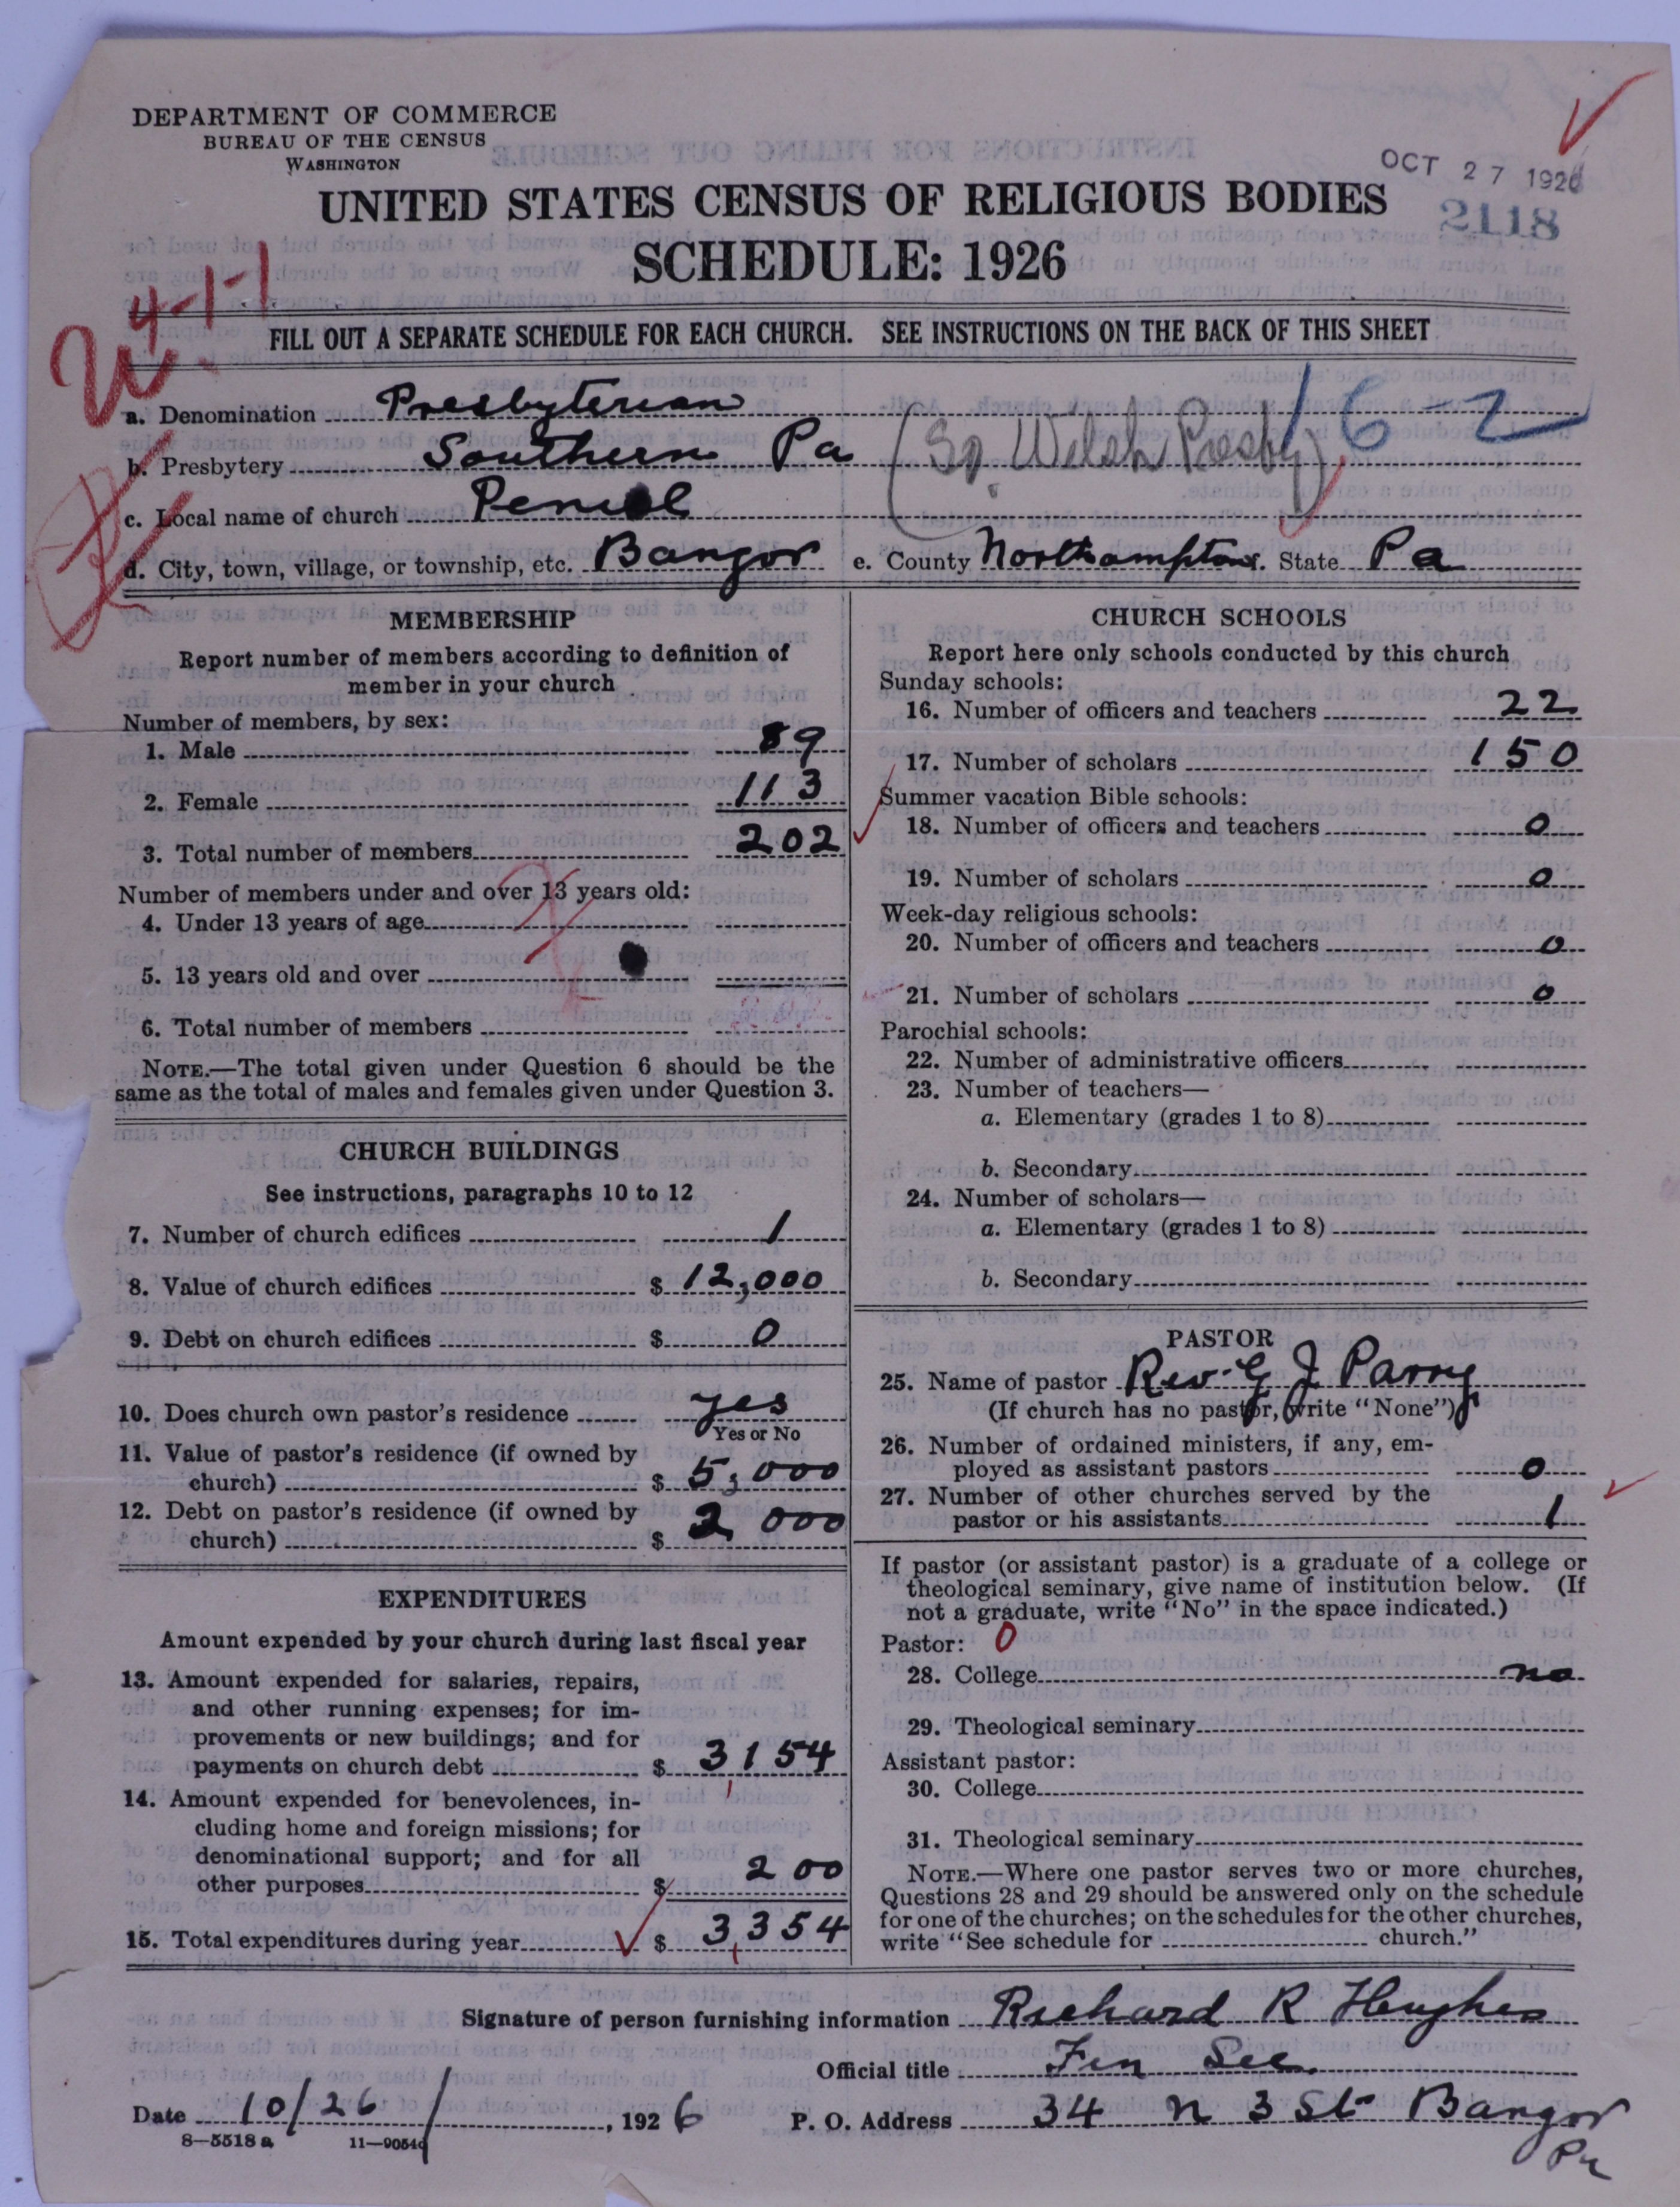 DEPARTMENT OF COMMERCE
BUREAU OF THE CENSUS
WASHINGTON
OCT 27 1926
2118
UNITED STATES CENSUS OF RELIGIOUS BODIES
SCHEDULE: 1926
4-1-1
FILL OUT A SEPARATE SCHEDULE FOR EACH CHURCH. SEE INSTRUCTIONS ON THE BACK OF THIS SHEET
a. Denomination Presbyterian 16-2
b. Presbytery Southern Pa (So. Welsh Presby)
c. Local name of church Peniel
d. City, town, village, or township, etc. Bangor e. County Northampton. State Pa
MEMBERSHIP
Report number of members according to definition of
member in your church
Number of members, by sex:
1. Male 89
2. Female 113
3. Total number of members 202
Number of members under and over 13 years old:
4. Under 13 years of age
5. 13 years old and over
6. Total number of members 202
NOTE.—The total given under Question 6 should be the
same as the total of males and females given under Question 3.
CHURCH BUILDINGS
See instructions, paragraphs 10 to 12
7. Number of church edifices 1
8. Value of church edifices $ 12,000
9. Debt on church edifices $ 0
10. Does church own pastor's residence yes
Yes or No
11. Value of pastor's residence (if owned by
church) $ 5,000
12. Debt on pastor's residence (if owned by
church) $ 2 000
EXPENDITURES
Amount expended by your church during last fiscal year
13. Amount expended for salaries, repairs,
and other running expenses; for im-
provements or new buildings; and for
payments on church debt $ 3154
14. Amount expended for benevolences, in-
cluding home and foreign missions; for
denominational support; and for all
other purposes $ 200
15. Total expenditures during year $ 3354
CHURCH SCHOOLS
Report here only schools conducted by this church
Sunday schools:
16. Number of officers and teachers 22
17. Number of scholars 150
Summer vacation Bible schools:
18. Number of officers and teachers 0
19. Number of scholars 0
Week-day religious schools:
20. Number of officers and teachers 0
21. Number of scholars 0
Parochial schools:
22. Number of administrative officers
23. Number of teachers—
a. Elementary (grades 1 to 8)
b. Secondary
24. Number of scholars—
a. Elementary (grades 1 to 8)
b. Secondary
PASTOR
25. Name of pastor Rev. G J Parry
(If church has no pastor, write "None")
26. Number of ordained ministers, if any, em-
ployed as assistant pastors 0
27. Number of other churches served by the
pastor or his assistants 1
If pastor (or assistant pastor) is a graduate of a college or
theological seminary, give name of institution below. (If
not a graduate, write "No" in the space indicated.)
Pastor: 0
28. College no
29. Theological seminary
Assistant pastor:
30. College
31. Theological seminary
NOTE.—Where one pastor serves two or more churches,
Questions 28 and 29 should be answered only on the schedule
for one of the churches; on the schedules for the other churches,
write "See schedule for church."
Signature of person furnishing information Richard R Hughes
Official title Fin Sec.
Date 10/26/, 1926 P. O. Address 34 N 3 St Bangor
Pa
8—5518 a 11—9054